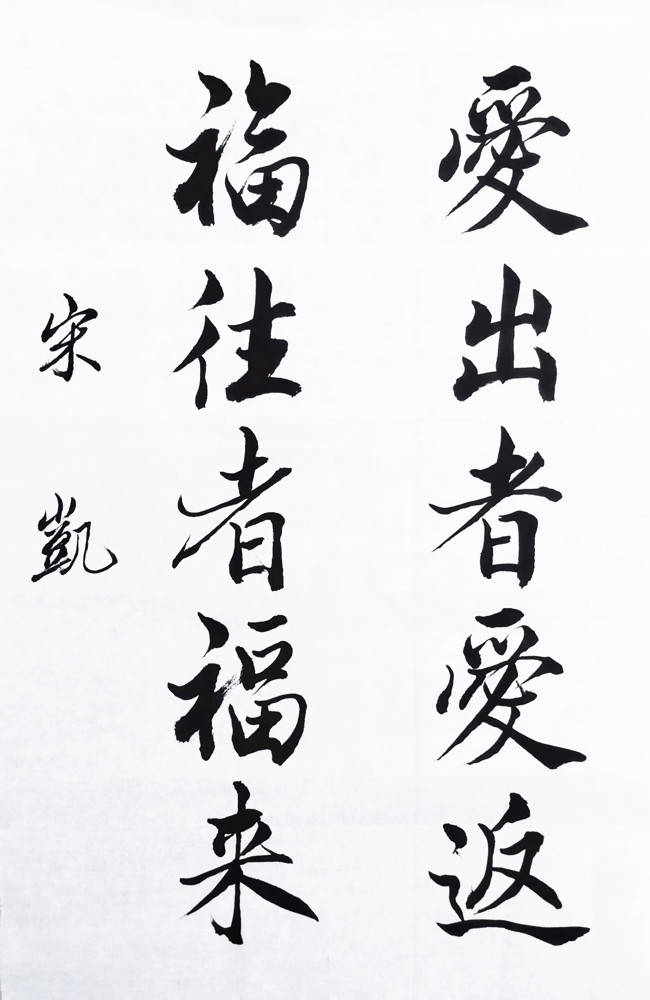 愛出者愛返
福往者福来
宋凱